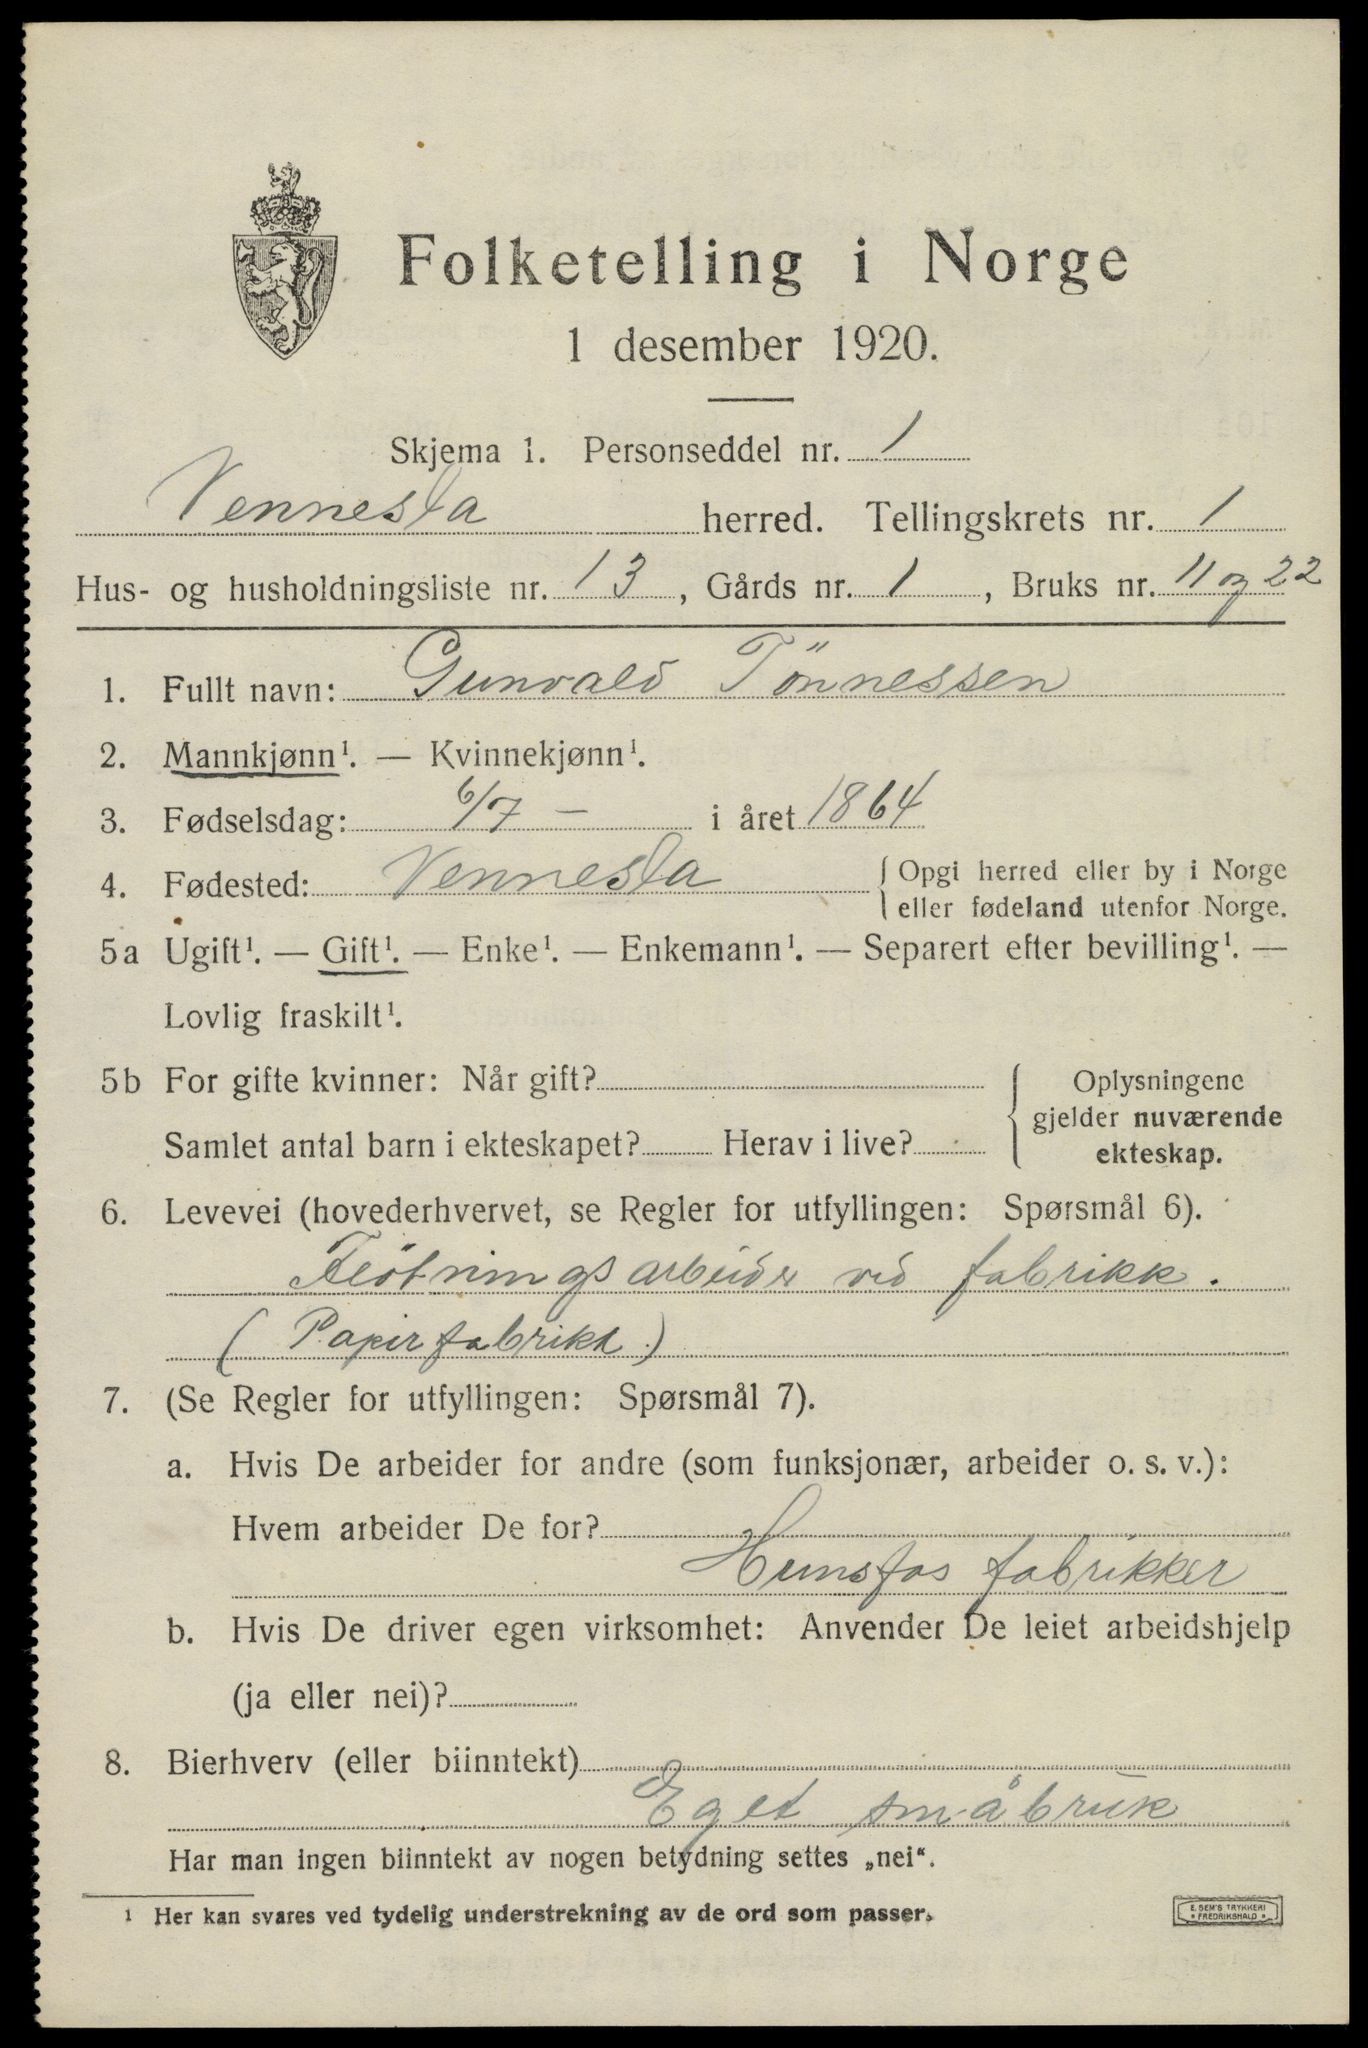 Folketelling i Norge
1 desember 1920.
Skjema 1. Personseddel nr. 1
Vennesla herred. Tellingskrets nr. 1
Hus- og husholdningsliste nr. 13, Gårds nr. 1, Bruks nr. 11 og 22
1. Fullt navn: Gunvald Tönnessen
2. Mannkjønn¹. — Kvinnekjønn¹.
3. Fødselsdag: 6/7 – i året 1864
4. Fødested: Vennesla { Opgi herred eller by i Norge
eller fødeland utenfor Norge.
5a Ugift¹. — Gift¹. — Enke¹. — Enkemann¹. — Separert efter bevilling¹. —
Lovlig fraskilt¹.
5b For gifte kvinner: Når gift? { Oplysningene
gjelder nuværende
Samlet antal barn i ekteskapet? Herav i live? ekteskap.
6. Levevei (hovederhvervet, se Regler for utfyllingen: Spørsmål 6).
Flötningsarbeider ved fabrikk.
(Papirfabrikk)
7. (Se Regler for utfyllingen: Spørsmål 7).
a. Hvis De arbeider for andre (som funksjonær, arbeider o. s. v.):
Hvem arbeider De for?
Hunsfos fabrikker
b. Hvis De driver egen virksomhet: Anvender De leiet arbeidshjelp
(ja eller nei)?
8. Bierhverv (eller biinntekt)
Eget småbruk
Har man ingen biinntekt av nogen betydning settes „nei“.
¹ Her kan svares ved tydelig understrekning av de ord som passer.
E. SEM'S TRYKKERI
FREDRIKSHALD